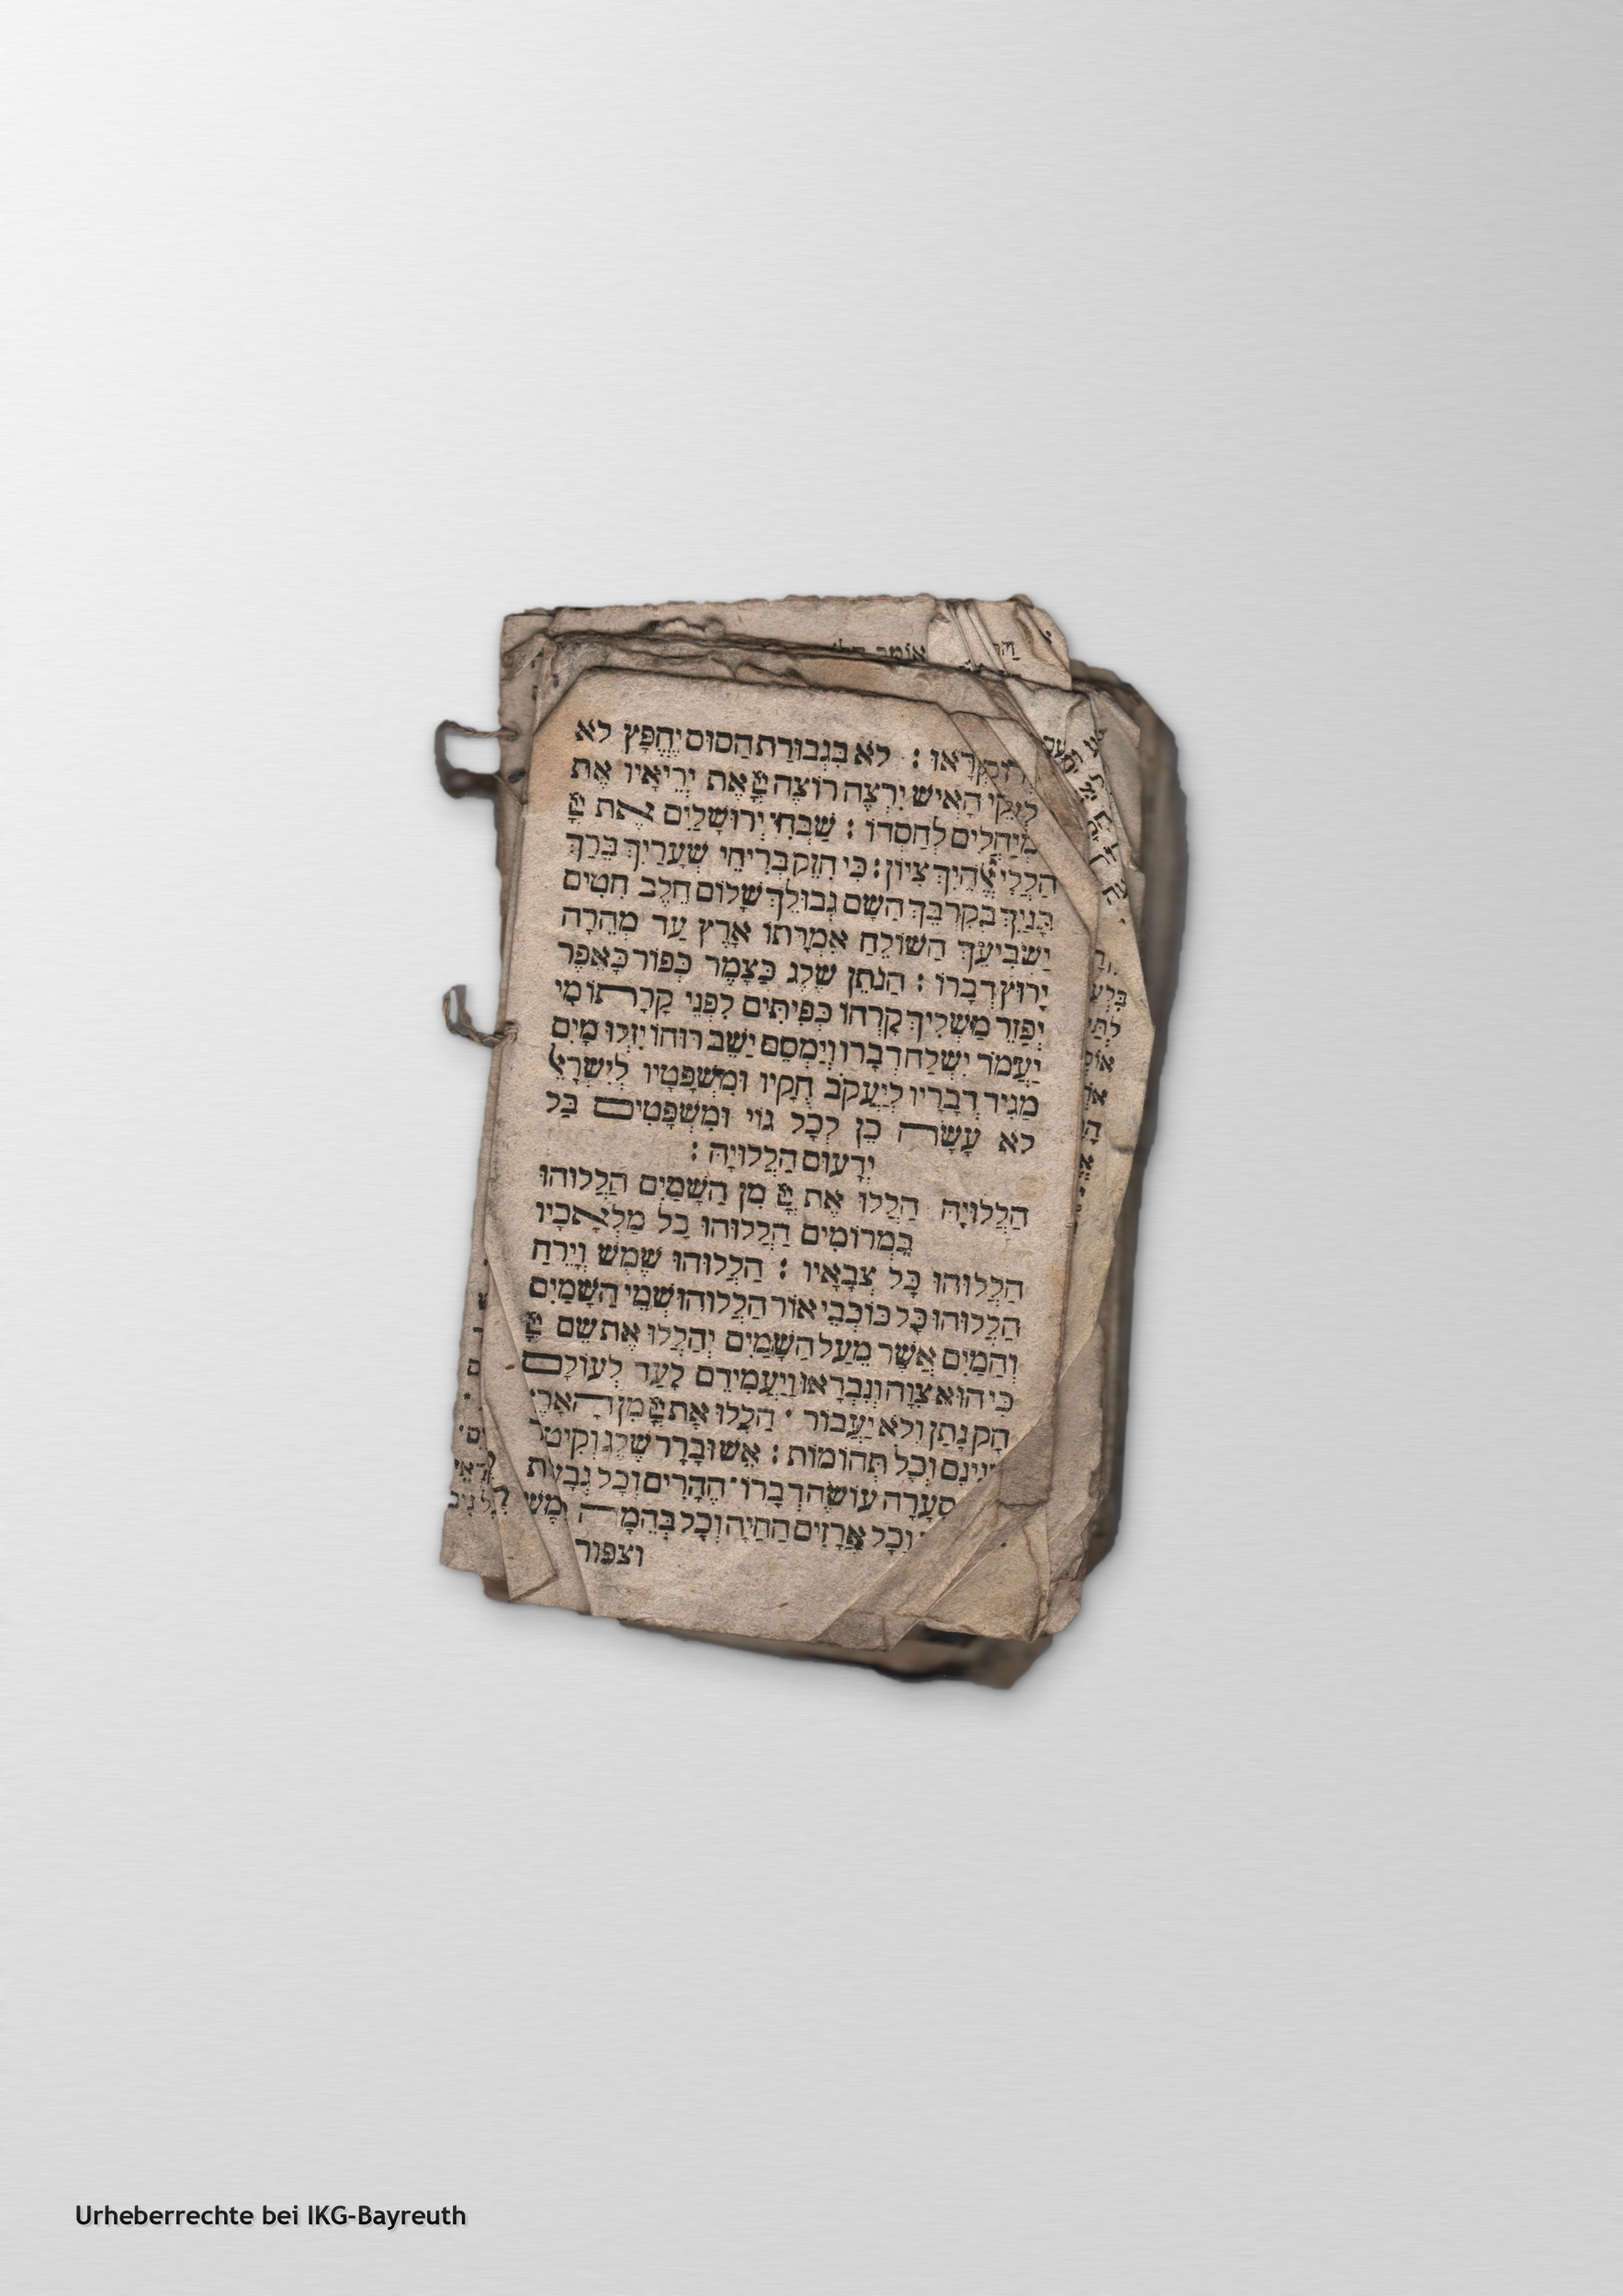 יקראו : לא בגבורת הסוס יחפץ לא
האיש ירצה רוצה את יריאיו את
מיחלים לחסדו : שבחי ירושלים את
הללי ציון : כי חזק בריחי שעריך ברך
בניך בקרבך השם גבולך שלום חלב חטים
ישביעך השולח אמרתו ארץ עד מהרה
ירוץ דברו : הנתן שלג כצמר כפור כאפר
יפזר משליך קרחו כפיתים לפני קרתו מי
יעמד ישלח דברו וימסם ישב רוחו יזלו מים
מגיד דבריו ליעקב חקיו ומשפטיו לישראל
לא עשה כן לכל גוי ומשפטים בל
ידעום הללויה :
הללויה הללו את מן השמים הללוהו
במרומים הללוהו כל מלאכיו
הללוהו כל צבאיו : הללוהו שמש וירח
הללוהו כל כוכבי אור הללוהו שמי השמים
והמים אשר מעל השמים יהללו את שם
כי הוא צוה ונבראו ויעמידם לעד לעולם
חק נתן ולא יעבור הללו את מן
וכל תהומות : אש וברד שלג
סערה עושה דברו ההרים וכל
וכל ארזים החיה וכל בהמה
וצפור
Urheberrechte bei IKG-Bayreuth